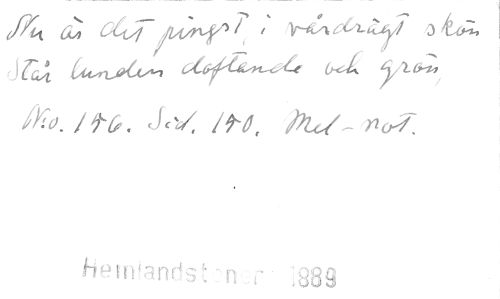 Nu är det pingst, i vårdrägt skön
Står lunden doftande och grön,
N:o. 156. Sid. 150. Mel-not.
Hemlandstoner 1889